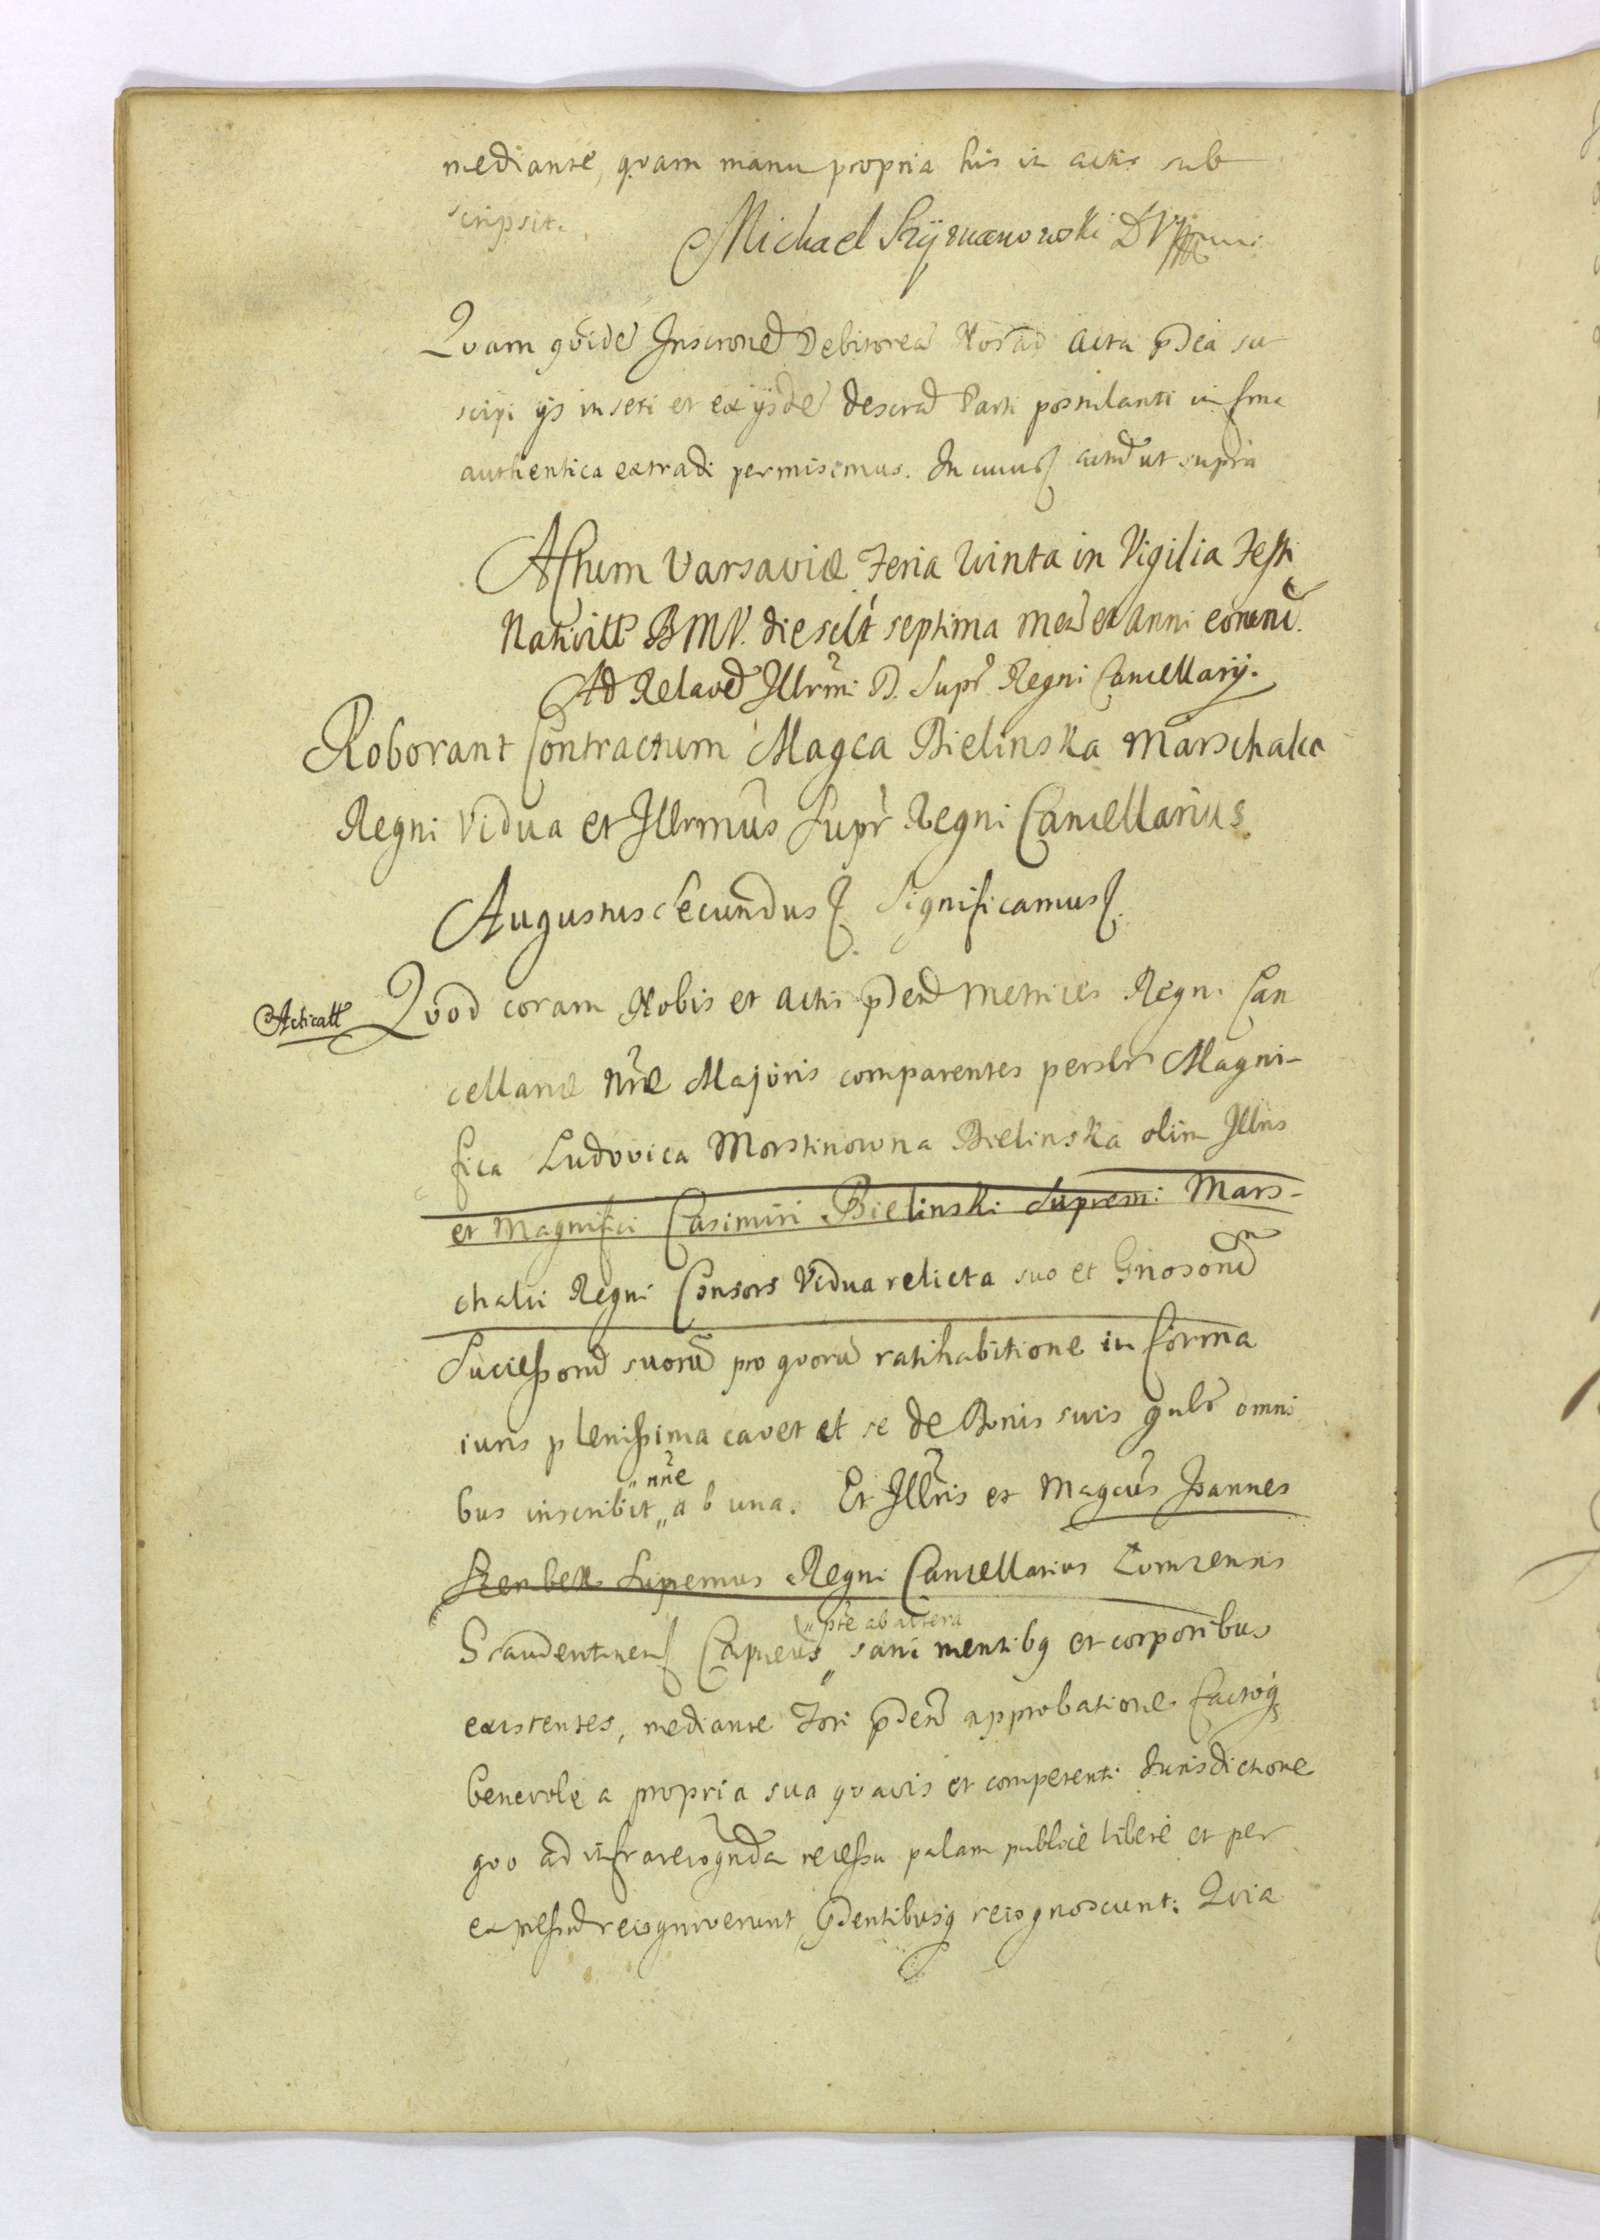 mediante, qvam manu propria his in actis sub
scripsit.
Michael Szÿmanowski
Qvam qvide Inscrone Debitorea Norad acta pdca su
scipi ijs inseri et ex ijsde descrad Parti postulanti in frma
authentica extradi permisimus. In cuius actud ut supra
Actum Varsaviæ Feria Qvinta in Vigilia Festi
Nativitt BMV. die sclt septima mens et Anni eorund.
Ad Relaoe Illrmi D. Supr Regni Cancellarij.
Roborant Contractum Magca Bielinska Marschalca
Regni Vidua et Illrmus Supr Regni Cancellarius
Augustus Secundus Significamus
Acticatt Qvod coram Nobis et Actis pdent Metrices Regni Can
cellariæ Nræ Majoris comparentes persltr Magni-
fica Ludovica Morstinowna Bielinska olim Illris
et Magnifici Casimiri Bielinski Supremi Mars-
chalci Regni Consors Vidua relicta suo et Gnosorud
Successorud suorū pro qvorū ratihabitione in forma
iuris plenissima cavet et se de Bonis suis gnlr omni
bus inscribit „ab una. Et Illris et Magcus Joannes
„nne
Szembek Supremus Regni Cancellarius Lomzensis
„pte ab altera
Graudentinens Capneus „ sani mentibq et corporibus
existentes, mediante Fori pdent approbatione factoq
benevole a propria sua qvavis et competenti Jurisdictione
qvo ad infrarecognda recessu palam publicè liberè et per
expressud recognoverunt pdentibusq recognoscunt: Qvia